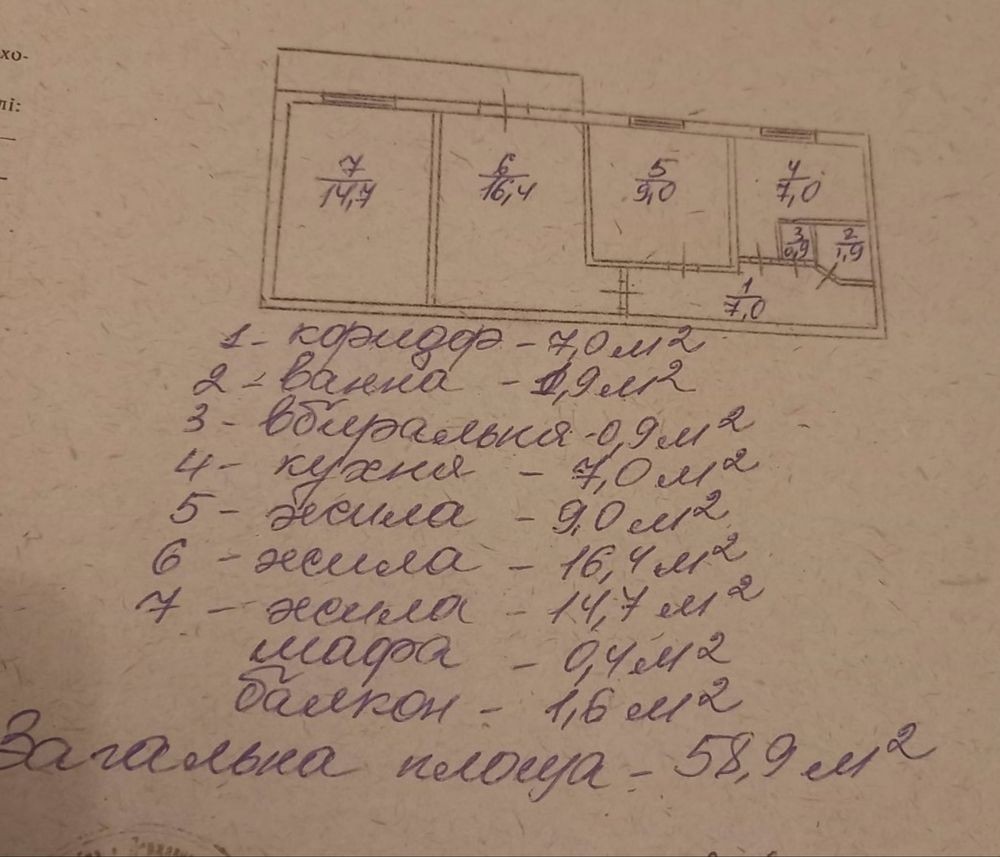 хо-
лі:
7
14,7
6
16,4
5
9,0
4
7,0
3
0,9
2
1,9
1
7,0
1 - коридор - 7,0 м²
2 - ванна - 1,9 м²
3 - вбиральня - 0,9 м²
4 - кухня - 7,0 м²
5 - жила - 9,0 м²
6 - жила - 16,4 м²
7 - жила - 14,7 м²
шафа - 0,4 м²
балкон - 1,6 м²
Загальна площа - 58,9 м²